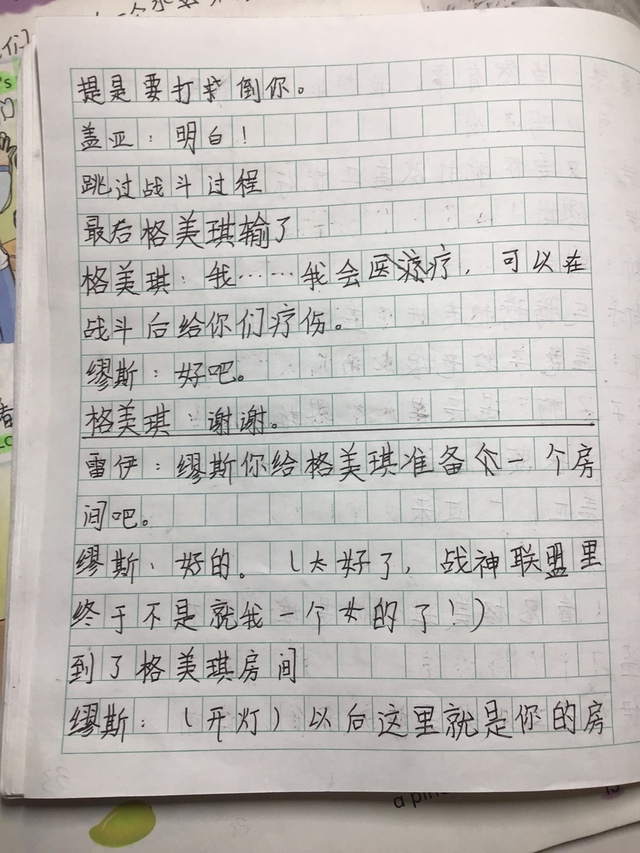 们
提是要打我倒你。
盖亚：明白！
跳过战斗过程
最后格美琪输了
格美琪：我……我会医疗，可以在
战斗后给你们疗伤。
缪斯：好吧。
格美琪：谢谢。
雷伊：缪斯你给格美琪准备一个房
间吧。
缪斯：好的。（太好了，战神联盟里
终于不是就我一个女的了！）
到了格美琪房间
缪斯：（开灯）以后这里就是你的房